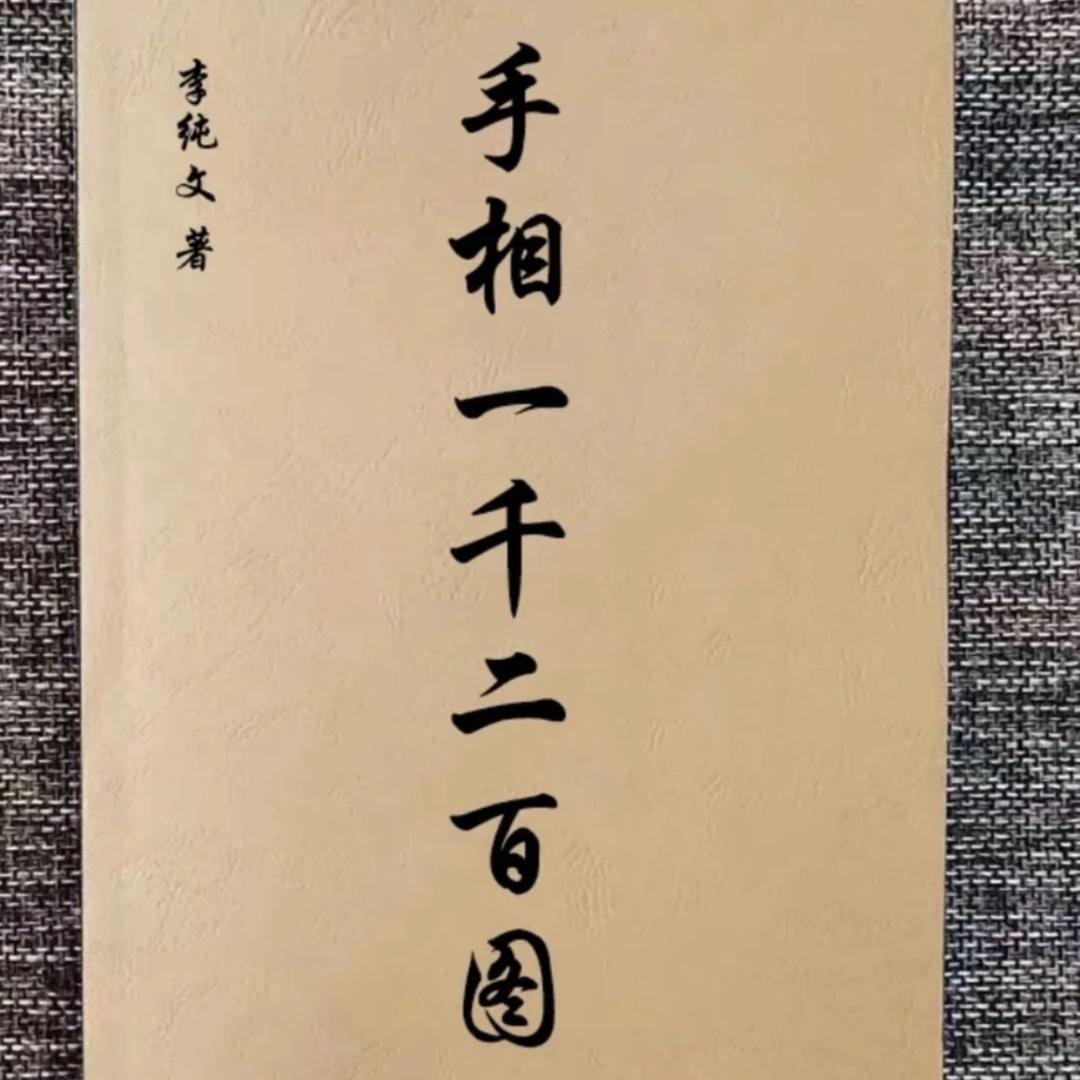 手相一千二百图
李纯文 著